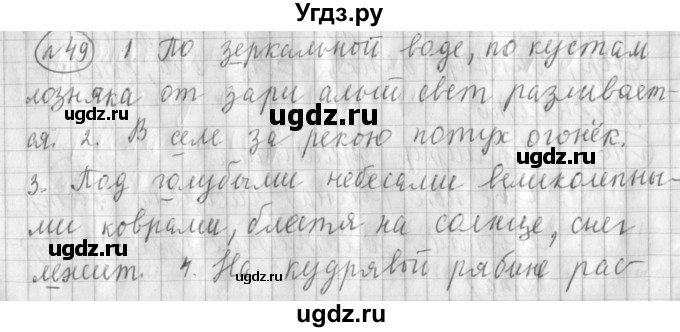 Угдз.ру
№49 1 По зеркальной воде, по кустам
лозняка от зари алый свет разливает-
ся. 2. В селе за рекою потух огонёк.
3. Под голубыми небесами великолепны-
ми коврами, блестя на солнце, снег
лежит. 4. На кудрявой рябине рас-
ugdz.ru
ugdz.ru
ugdz.ru
ugdz.ru
ugdz.ru
ugdz.ru
ugdz.ru
ugdz.ru
ugdz.ru